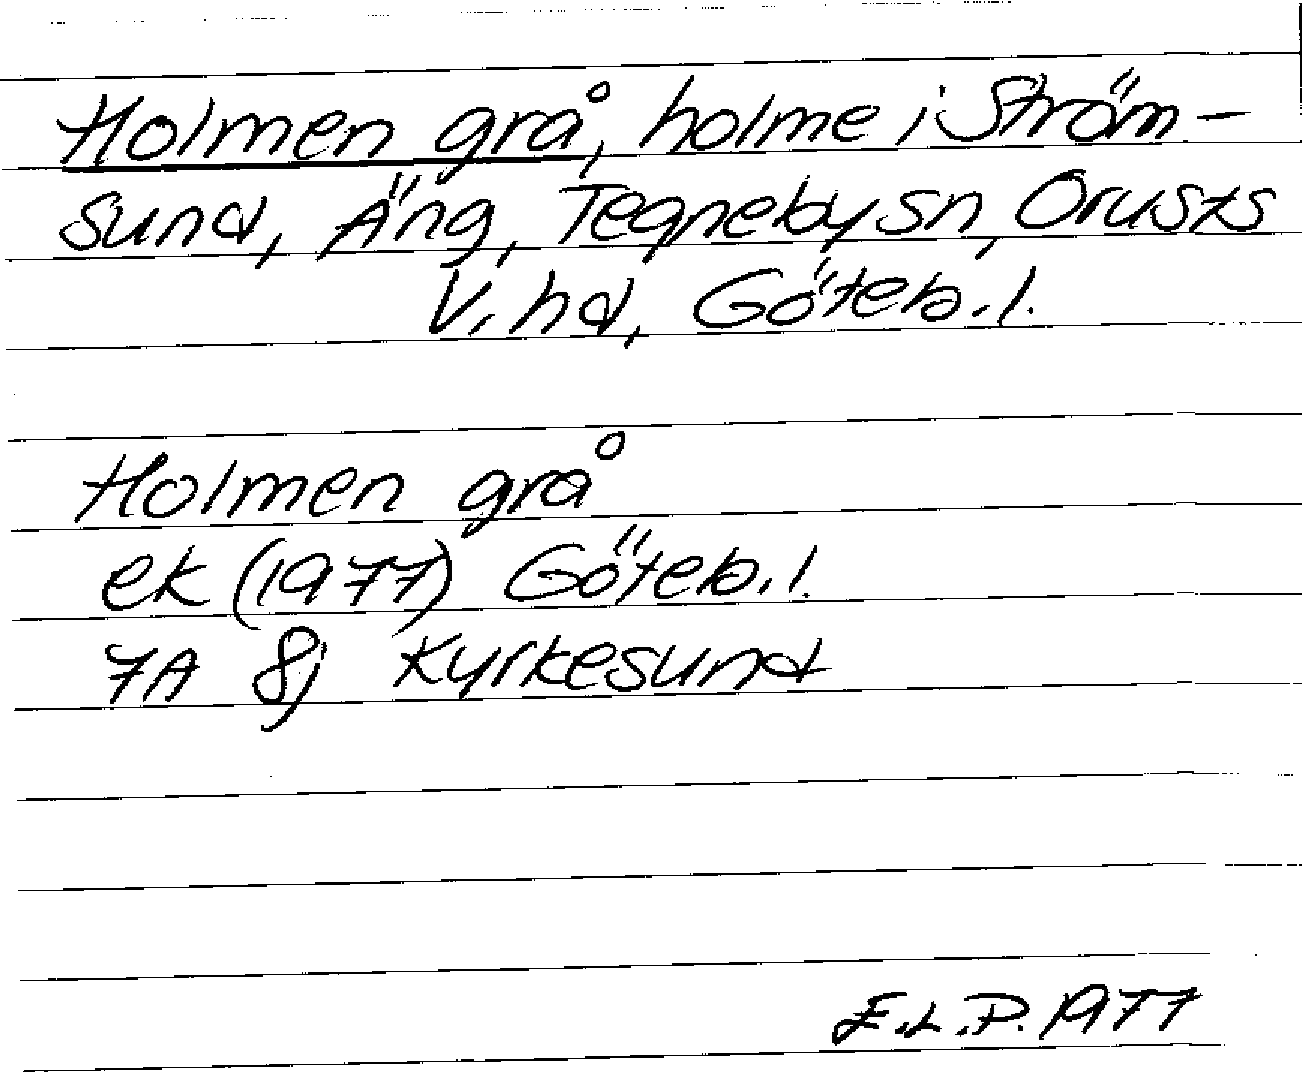 Holmen grå, holme i Ström-
sund, Äng, Tegneby sn, Orusts
V. hd, Göteb.l.
Holmen grå
ek (1977) Göteb.l.
7A 8j Kyrkesund
E.L.P. 1977